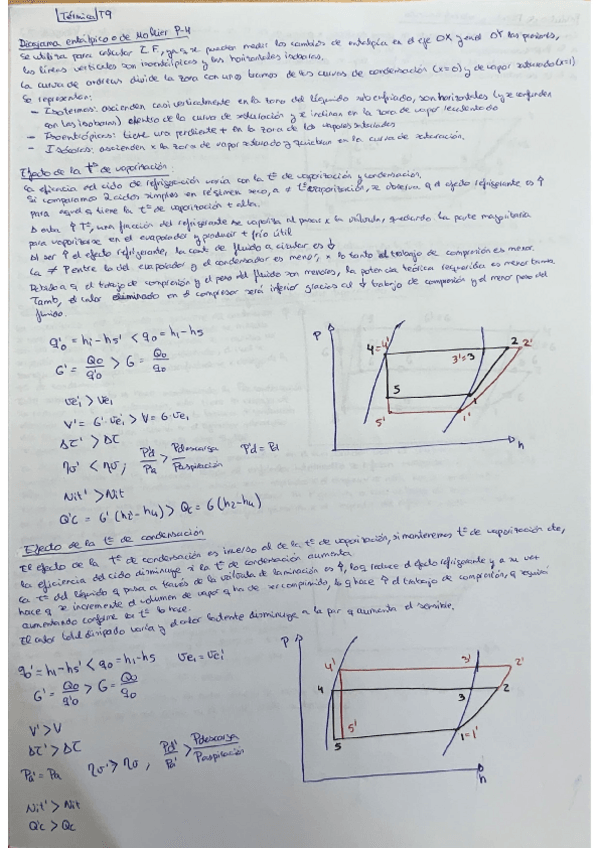 Térmica T9
Diagrama entálpico o de Mollier P-H
Se utiliza para calcular I.F, ya q se pueden medir los cambios de entalpía en el eje OX y en el OY las presiones,
las líneas verticales son isoentálpicas y las horizontales isobaras.
La curva de andrews divide la zona con unos tramos de las curvas de condensación (x=0) y de vapor saturado (x=1)
Se representan:
- Isotermas: ascienden casi verticalmente en la zona del líquido subenfriado, son horizontales (y se confunden
con las isobaras) dentro de la curva de saturación y se inclinan en la zona de vapor
- Isoentrópicas: tiene una pendiente + en la zona de los vapores
- Isócoras: ascienden x la zona de vapor saturado y quiebran en la curva de saturación.
Efecto de la Tª de vaporización:
La eficiencia del ciclo de refrigeración varía con la tª de vaporización y condensación.
Si comparamos 2 ciclos simples en régimen seco, a ≠ tª vaporización, se observa q el efecto refrigerante es ↑
para aquel q tiene la tª de vaporización + alta.
A esta ↑ Tª, una fracción del refrigerante se vaporiza al pasar x la válvula, quedando la parte mayoritaria
para vaporizarse en el evaporador y producir + frío útil
Al ser ↑ el efecto refrigerante, la cant de fluido a circular es ↓
La ≠ P entre la del evaporador y el condensador es menor, x lo tanto el trabajo de compresión es menor.
Debido a q el trabajo de compresión y el peso del fluido son menores, la potencia teórica requerida es menor
Tamb, el calor eliminado en el compresor será inferior gracias al ↓ trabajo de compresión y el menor peso del
fluido.
q'o = h1-h5' < qo = h1-h5
G' = Qo/q'o > G = Qo/qo
ve1' > ve1
V' = G'·ve1' > V = G·ve1
Δτ' > Δτ
ησ' < ησ ; P'd/P'a > Pdescarga/Paspiración P'd = Pd
Nit' > Nit
Q'c = G'(h2'-h4) > Qc = G(h2-h4)
P
4=4'
3'=3
2
2'
5
1
5'
1'
h
Efecto de la tª de condensación
El efecto de la Tª de condensación es inverso al de la tª de vaporización, si mantenemos tª de vaporización cte,
la eficiencia del ciclo disminuye si la tª de condensación aumenta.
La tª del líquido q pasa a través de la válvula de laminación es ↑, lo q reduce el efecto refrigerante y a su vez
hace q se incremente el volumen de vapor q ha de ser comprimido, lo q hace ↑ el trabajo de compresión, q seguirá
aumentando conforme la tª lo hace.
El calor total disipado varía y el calor latente disminuye a la par q aumenta el sensible.
qo' = h1-h5' < qo = h1-h5 ve1 = ve1'
G' = Qo/q'o > G = Qo/qo
V' > V
Δτ' > Δτ
Pa' = Pa ησ' > ησ , Pd'/Pa' > Pdescarga/Paspiración
Nit' > Nit
Q'c > Qc
P
4'
3'
2'
4
3
2
5'
5
1=1'
h